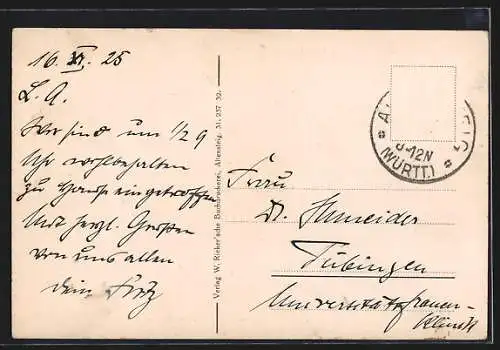 16. XI. 25
L. A.
Wir sind um 1/2 9
Uhr wohlbehalten
zu Hause eingetroffen
Mit herzl. Grüßen
von uns allen
Dein Fritz
Verlag W. Rieker'sche Buchdruckerei, Altensteig. M. 237 32.
Frau
Dr. Schneider
Tübingen
Universitätsfrauen-
klinik
8-12N
(WÜRTT.)